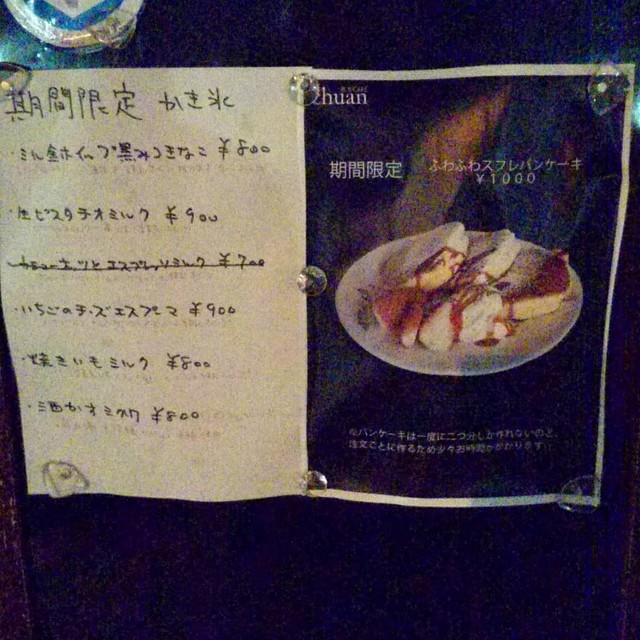 期間限定 かき氷
・ミルク金ホイップ黒みつきなこ ¥800
・生ピスタチオミルク ¥900
ミルク ¥700
・いちごのチーズエスプーマ ¥900
・焼きいもミルク ¥800
・酒かすミルク ¥800
zhuan
期間限定 ふわふわスフレパンケーキ
¥1000
※パンケーキは一度に二つ分しか作れないので、
注文ごとに作るため少々お時間がかかります。